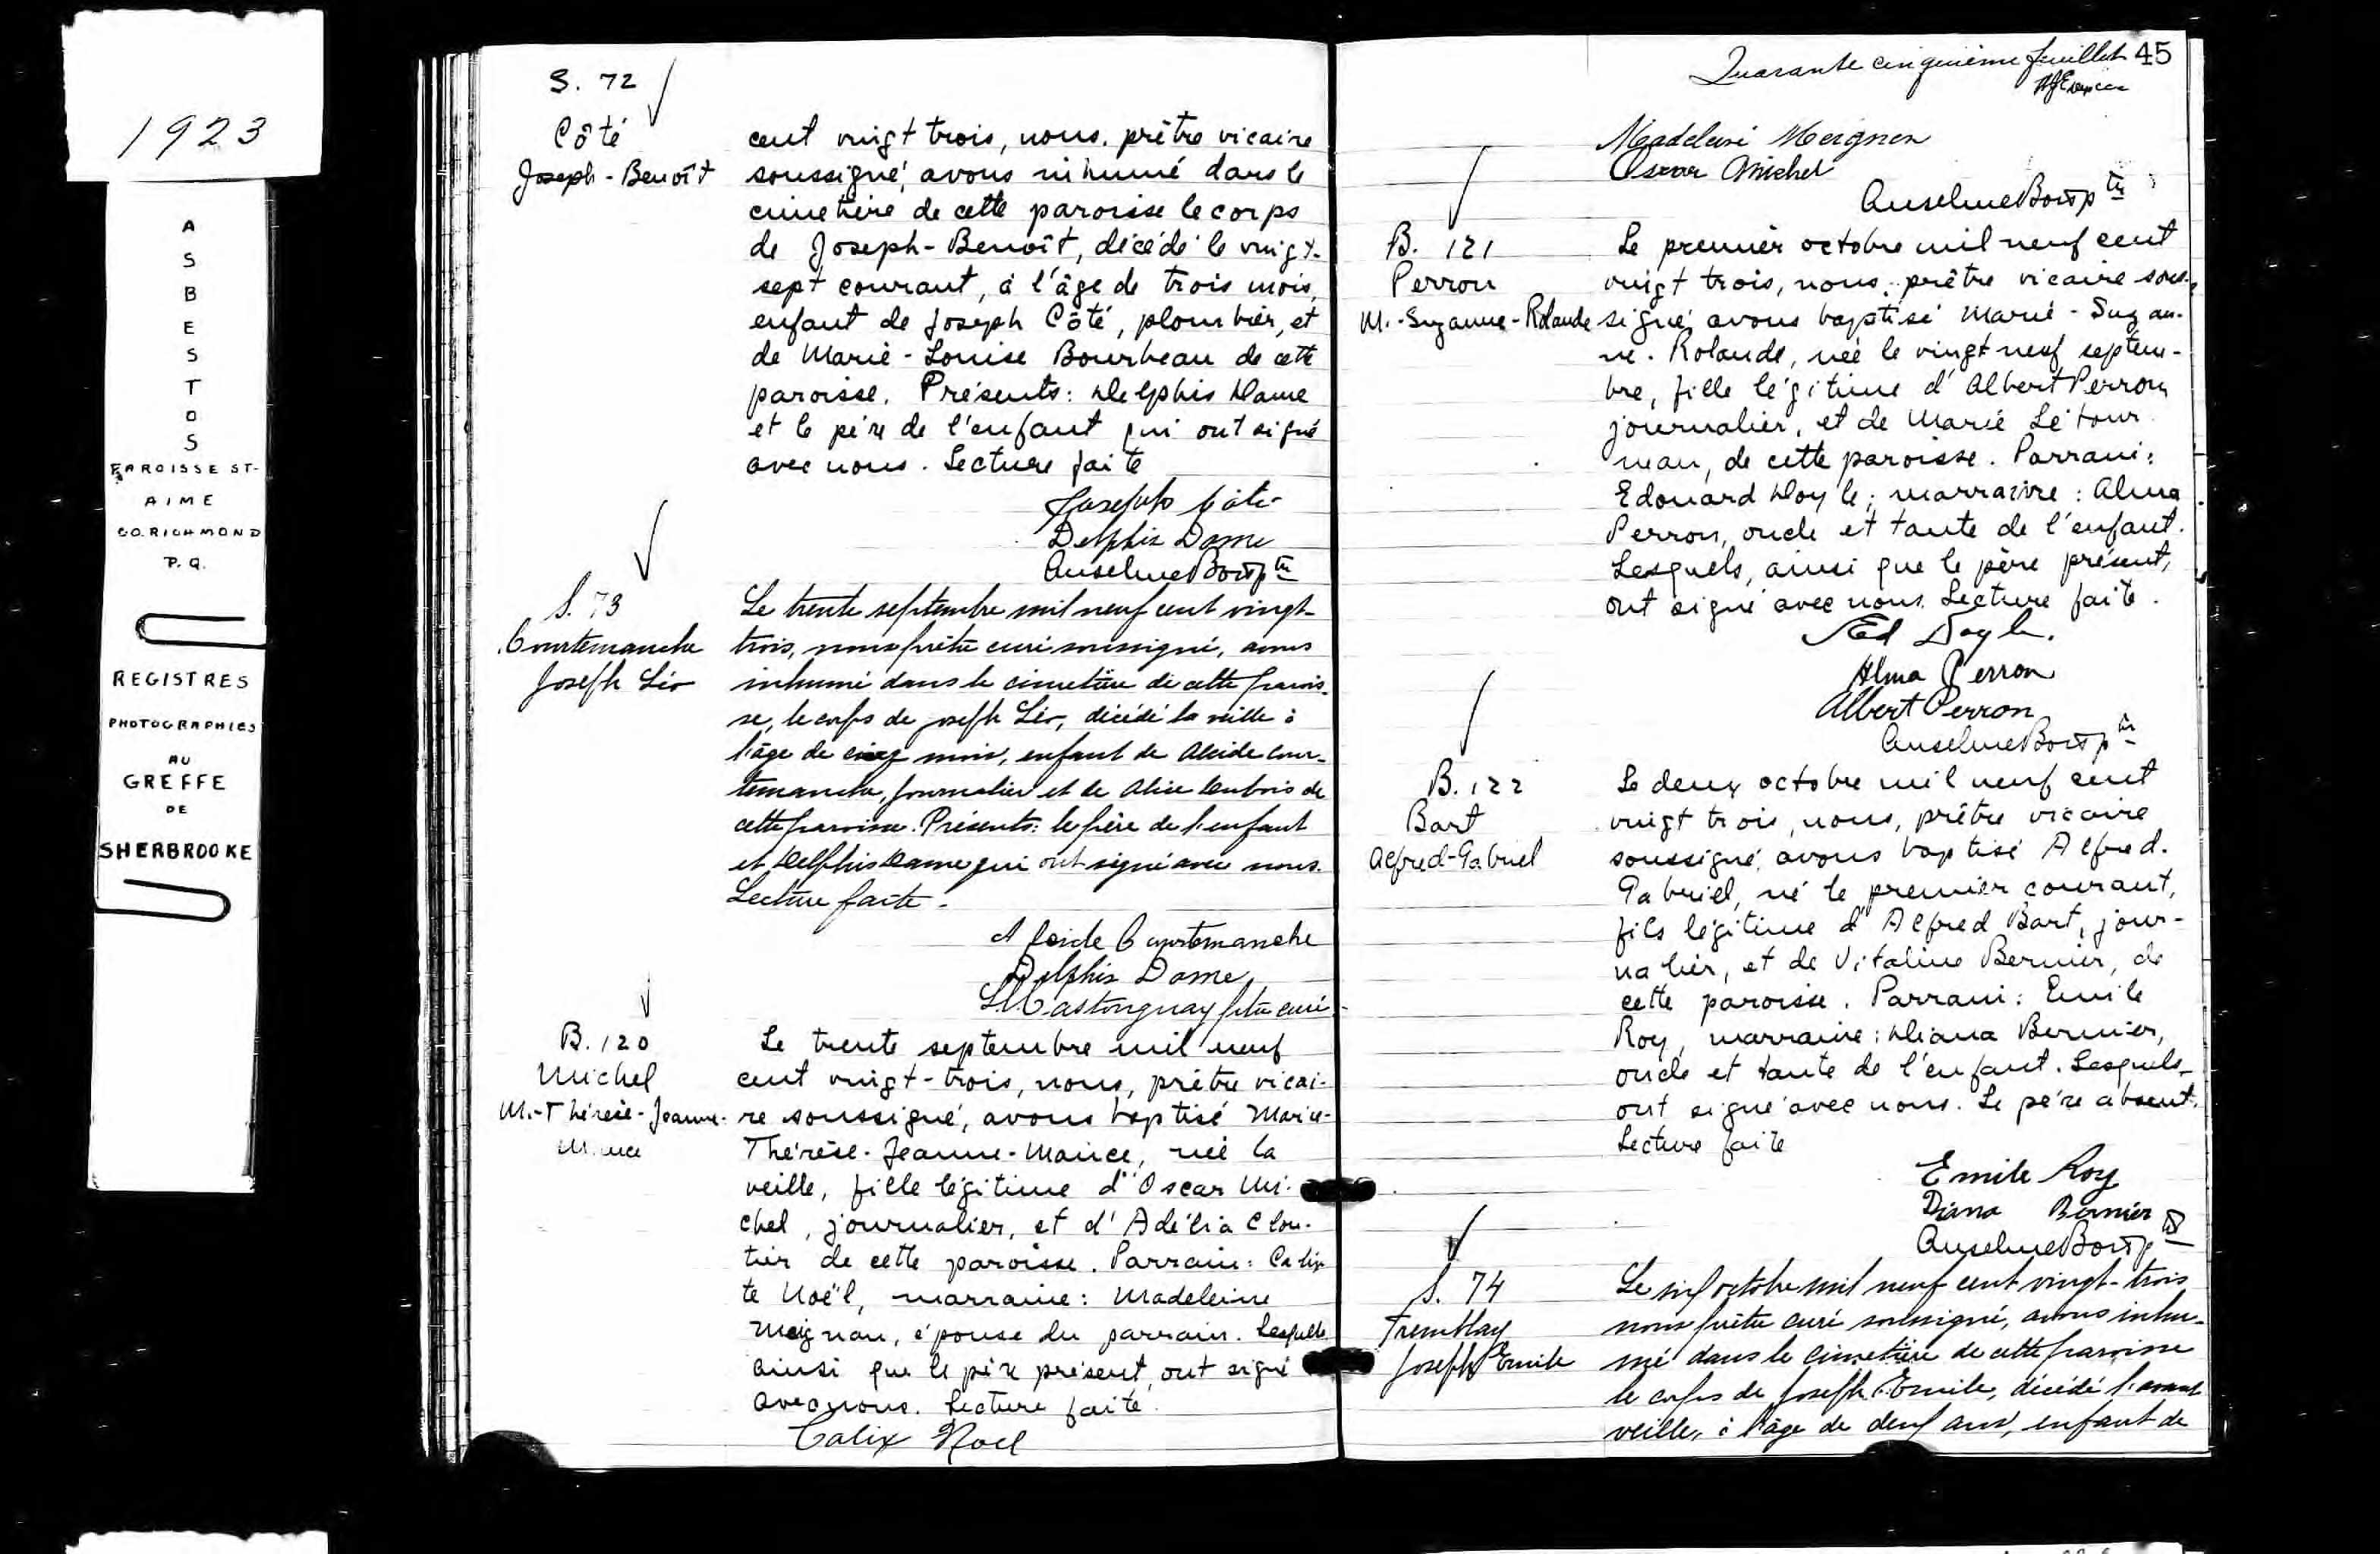 1923
A
S
B
E
S
T
O
S
PAROISSE ST-
AIME
CO. RICHMOND
P. Q.
REGISTRES
PHOTOGRAPHIES
AU
GREFFE
DE
SHERBROOKE
S. 72
Côté
Joseph - Benoît
cent vingt trois, nous, prêtre vicaire
soussigné, avons inhumé dans le
cimetière de cette paroisse le corps
de Joseph-Benoît, décédé le vingt-
sept courant, à l'âge de trois mois,
enfant de Joseph Côté, plombier, et
de Marie-Louise Bourbeau de cette
paroisse. Présents: Delphis Dame
et le père de l'enfant qui ont signé
avec nous. Lecture faite
Joseph Côté
Delphis Dame
Anselme Bois ptre
S. 73
Courtemanche
Joseph Léo
Le trente septembre mil neuf cent vingt-
trois, nous prêtre curé soussigné, avons
inhumé dans le cimetière de cette parois-
se, le corps de Joseph Léo, décédé la veille à
l'âge de cinq mois, enfant de Alcide Cour-
temanche, journalier et de Alice Dubois de
cette paroisse. Présents: le père de l'enfant
et Delphis Dame qui ont signé avec nous.
Lecture faite.
Alcide Courtemanche
Delphis Dame
Castonguay ptre curé
B. 120
Michel
M.-Thérèse-Jeanne-
Le trente septembre mil neuf
cent vingt-trois, nous, prêtre vicai-
re soussigné, avons baptisé Marie-
Thérèse-Jeanne-Marice, née la
veille, fille légitime d'Oscar Mi-
chel, journalier, et d'Adélia Clou-
tier de cette paroisse. Parrain: Calix-
te Noël, marraine: Madeleine
Meignan, épouse du parrain. Lesquels
ainsi que le père présent, ont signé
avec nous. Lecture faite.
Calix Noel
Quarante cinquième feuillet 45
Madeleine Meignen
Oscar Michel
Anselme Bois ptre
B. 121
Perron
M.-Suzanne-Rolande
Le premier octobre mil neuf cent
vingt trois, nous, prêtre vicaire sous-
signé, avons baptisé Marie-Suzan-
ne-Rolande, née le vingt neuf septem-
bre, fille légitime d'Albert Perron,
journalier, et de Marie Létour
neau, de cette paroisse. Parrain:
Edouard Doyle; marraine: Alma
Perron, oncle et tante de l'enfant.
Lesquels, ainsi que le père présent,
ont signé avec nous. Lecture faite.
Ed Doyle.
Alma Perron
Albert Perron
Anselme Bois ptre
B. 122
Bart
Alfred-Gabriel
Le deux octobre mil neuf cent
vingt trois, nous, prêtre vicaire
soussigné, avons baptisé Alfred-
Gabriel, né le premier courant,
fils légitime d'Alfred Bart, jour-
nalier, et de Vitaline Bernier, de
cette paroisse. Parrain: Emile
Roy, marraine: Diana Bernier,
oncle et tante de l'enfant. Lesquels
ont signé avec nous. Le père absent.
Lecture faite
Emile Roy
Diana Bernier
Anselme Bois ptre
S. 74
Tremblay
Joseph Emile
Le six octobre mil neuf cent vingt-trois
nous prêtre curé soussigné, avons inhu-
mé dans le cimetière de cette paroisse
le corps de Joseph Emile, décédé l'avant
veille, à l'âge de deux ans, enfant de